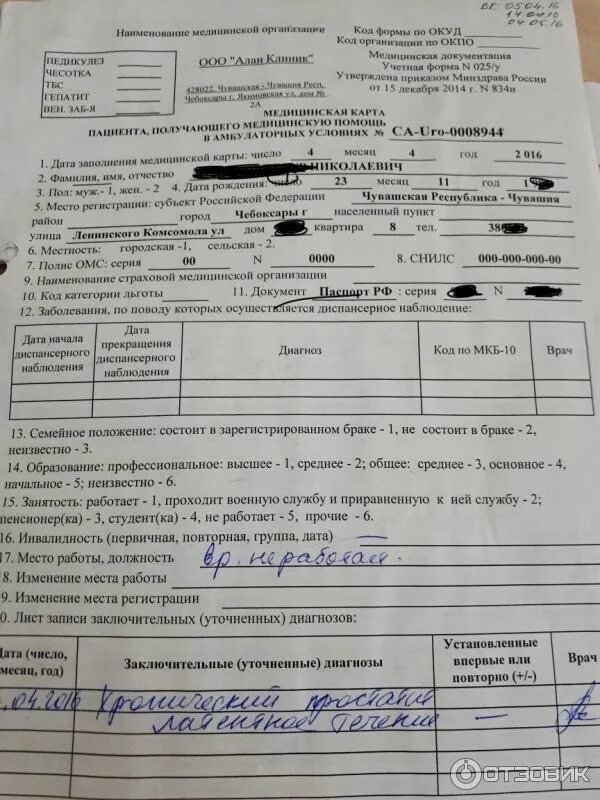 ВЕ 05.04.16
14.04.16
04.05.16
Наименование медицинской организации
Код формы по ОКУД
Код организации по ОКПО
Медицинская документация
Учетная форма N 025/у
Утверждена приказом Минздрава России
от 15 декабря 2014 г. N 834н
ПЕДИКУЛЕЗ
ЧЕСОТКА
ТБС
ГЕПАТИТ
ВЕН. ЗАБ-Я
ООО "Алан Клиник"
428022, Чувашская - Чувашия Респ,
Чебоксары г, Якимовская ул, дом №
2А
МЕДИЦИНСКАЯ КАРТА
ПАЦИЕНТА, ПОЛУЧАЮЩЕГО МЕДИЦИНСКУЮ ПОМОЩЬ
В АМБУЛАТОРНЫХ УСЛОВИЯХ № CA-Uro-0008944
1. Дата заполнения медицинской карты: число 4 месяц 4 год 2 016
2. Фамилия, имя, отчество НИКОЛАЕВИЧ
3. Пол: муж.- 1, жен. - 2 4. Дата рождения: число 23 месяц 11 год 1
5. Место регистрации: субъект Российской Федерации Чувашская Республика - Чувашия
район город Чебоксары г населенный пункт
улица Ленинского Комсомола ул дом квартира 8 тел. 38
6. Местность: городская -1, сельская - 2.
7. Полис ОМС: серия 00 N 0000 8. СНИЛС 000-000-000-00
9. Наименование страховой медицинской организации
10. Код категории льготы 11. Документ Паспорт РФ : серия N
12. Заболевания, по поводу которых осуществляется диспансерное наблюдение:
Дата начала диспансерного наблюдения
Дата прекращения диспансерного наблюдения
Диагноз
Код по МКБ-10
Врач
13. Семейное положение: состоит в зарегистрированном браке - 1, не состоит в браке - 2,
неизвестно - 3.
14. Образование: профессиональное: высшее - 1, среднее - 2; общее: среднее - 3, основное - 4,
начальное - 5; неизвестно - 6.
15. Занятость: работает - 1, проходит военную службу и приравненную к ней службу - 2;
пенсионер(ка) - 3, студент(ка) - 4, не работает - 5, прочие - 6.
16. Инвалидность (первичная, повторная, группа, дата) —
17. Место работы, должность вр. не работает.
18. Изменение места работы
9. Изменение места регистрации
0. Лист записи заключительных (уточненных) диагнозов:
Дата (число, месяц, год)
Заключительные (уточненные) диагнозы
Установленные впервые или повторно (+/-)
Врач
.04.2016 Хронический простатит
латентное течение —
ОТЗОВИК